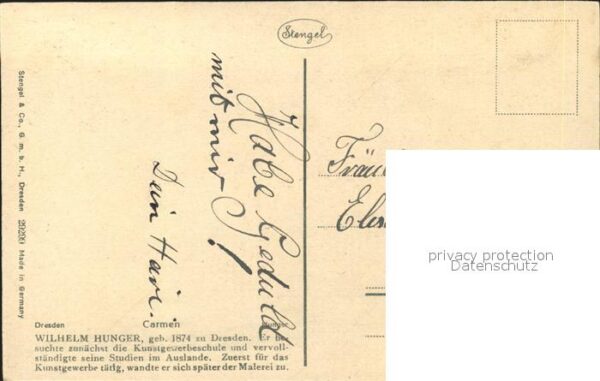 Stengel
Habe Geduld
mit mir!
Dein Hari.
Fräu
Elen
privacy protection
Datenschutz
Stengel & Co., G. m. b. H., Dresden 29299 Made in Germany
Dresden Carmen Hunger
WILHELM HUNGER, geb. 1874 zu Dresden. Er be-
suchte zunächst die Kunstgewerbeschule und vervoll-
ständigte seine Studien im Auslande. Zuerst für das
Kunstgewerbe tätig, wandte er sich später der Malerei zu.